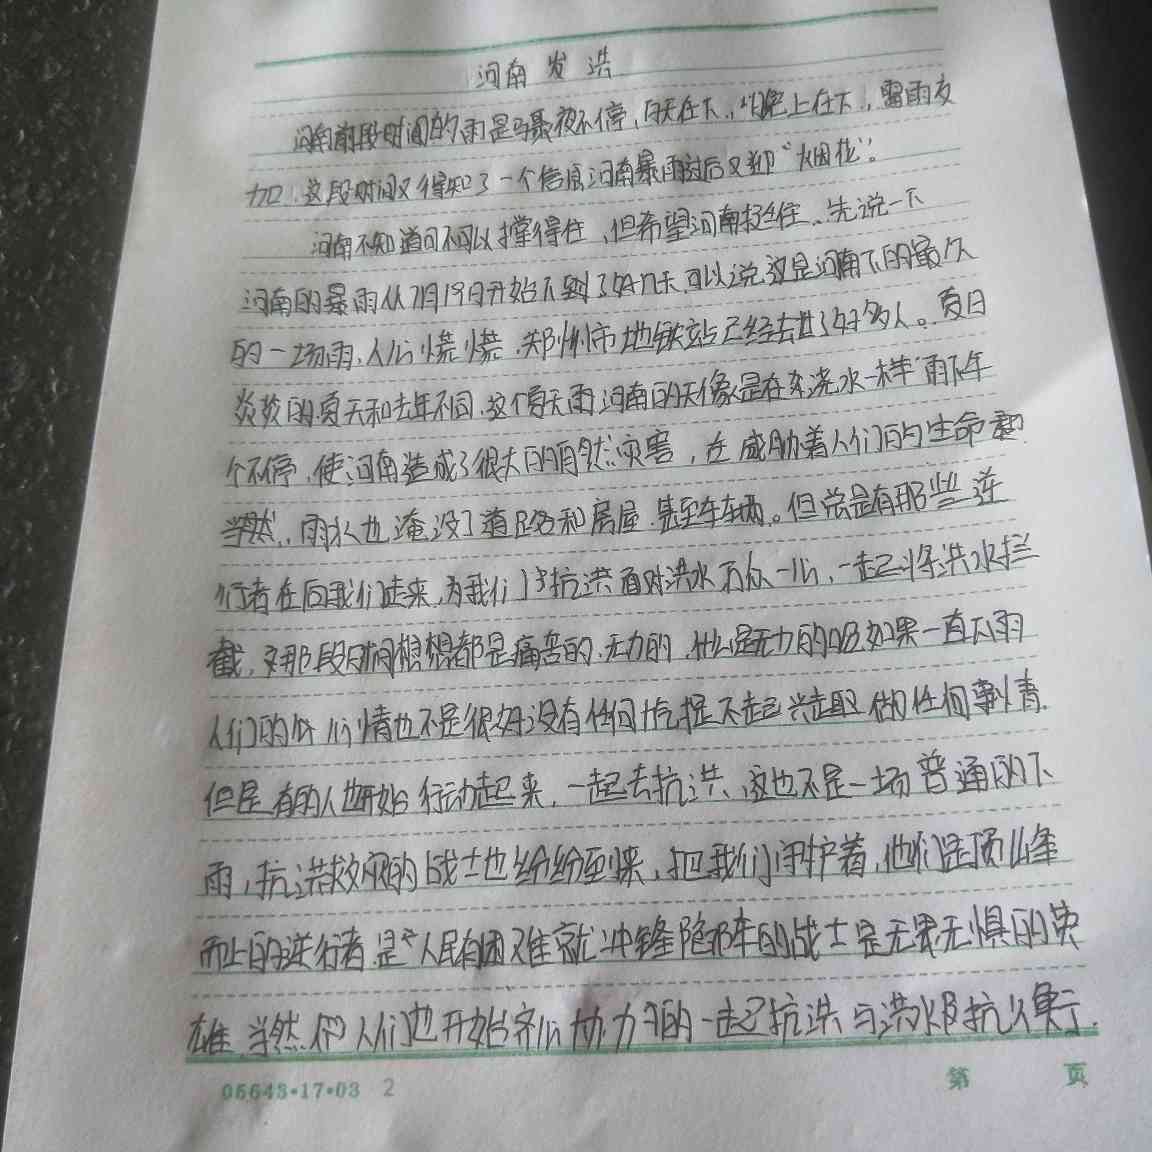 河南发洪
河南前段时间的雨是马最夜不停,白天在下,晚上在下,雷雨交
加.这段时间又得知了一个信息河南暴雨过后又抑"烟花"。
河南不知道可不可以撑得住、但希望河南挺住、先说一下
河南的暴雨从7月19日开始下到了好几天.可以说这是河南下的最久
的一场雨、人心慌慌.郑州市地铁站已经去世了好多人。夏日
炎炎的夏天和去年不同.这个夏天雨河南的天像是在浇水一样雨下
个不停.使河南造成了很大的自然灾害,在威胁着人们的生命
当然.雨水也淹没了道路和房屋.甚至车辆。但总是有那些逆
行者在向我们走来.为我们抗洪面对洪水万众一心、一起将洪水拦
截.那段时间想想都是痛苦的.无力的.什么是无力的呢如果一直下雨
人们的心情也不是很好没有任何提不起兴趣做任何事情.
但是有的人也开始行动起来.一起去抗洪、这也不是一场普通的下
雨,抗洪救灾的战士也纷纷到来、把我们守护着.他们是顶峰
而上的逆行者.是人民有困难就冲锋陷阵的战士是无畏无惧的英
雄.当然人们也开始齐心协力的一起抗洪与洪水抗衡.
05643·17·03 2
第 页